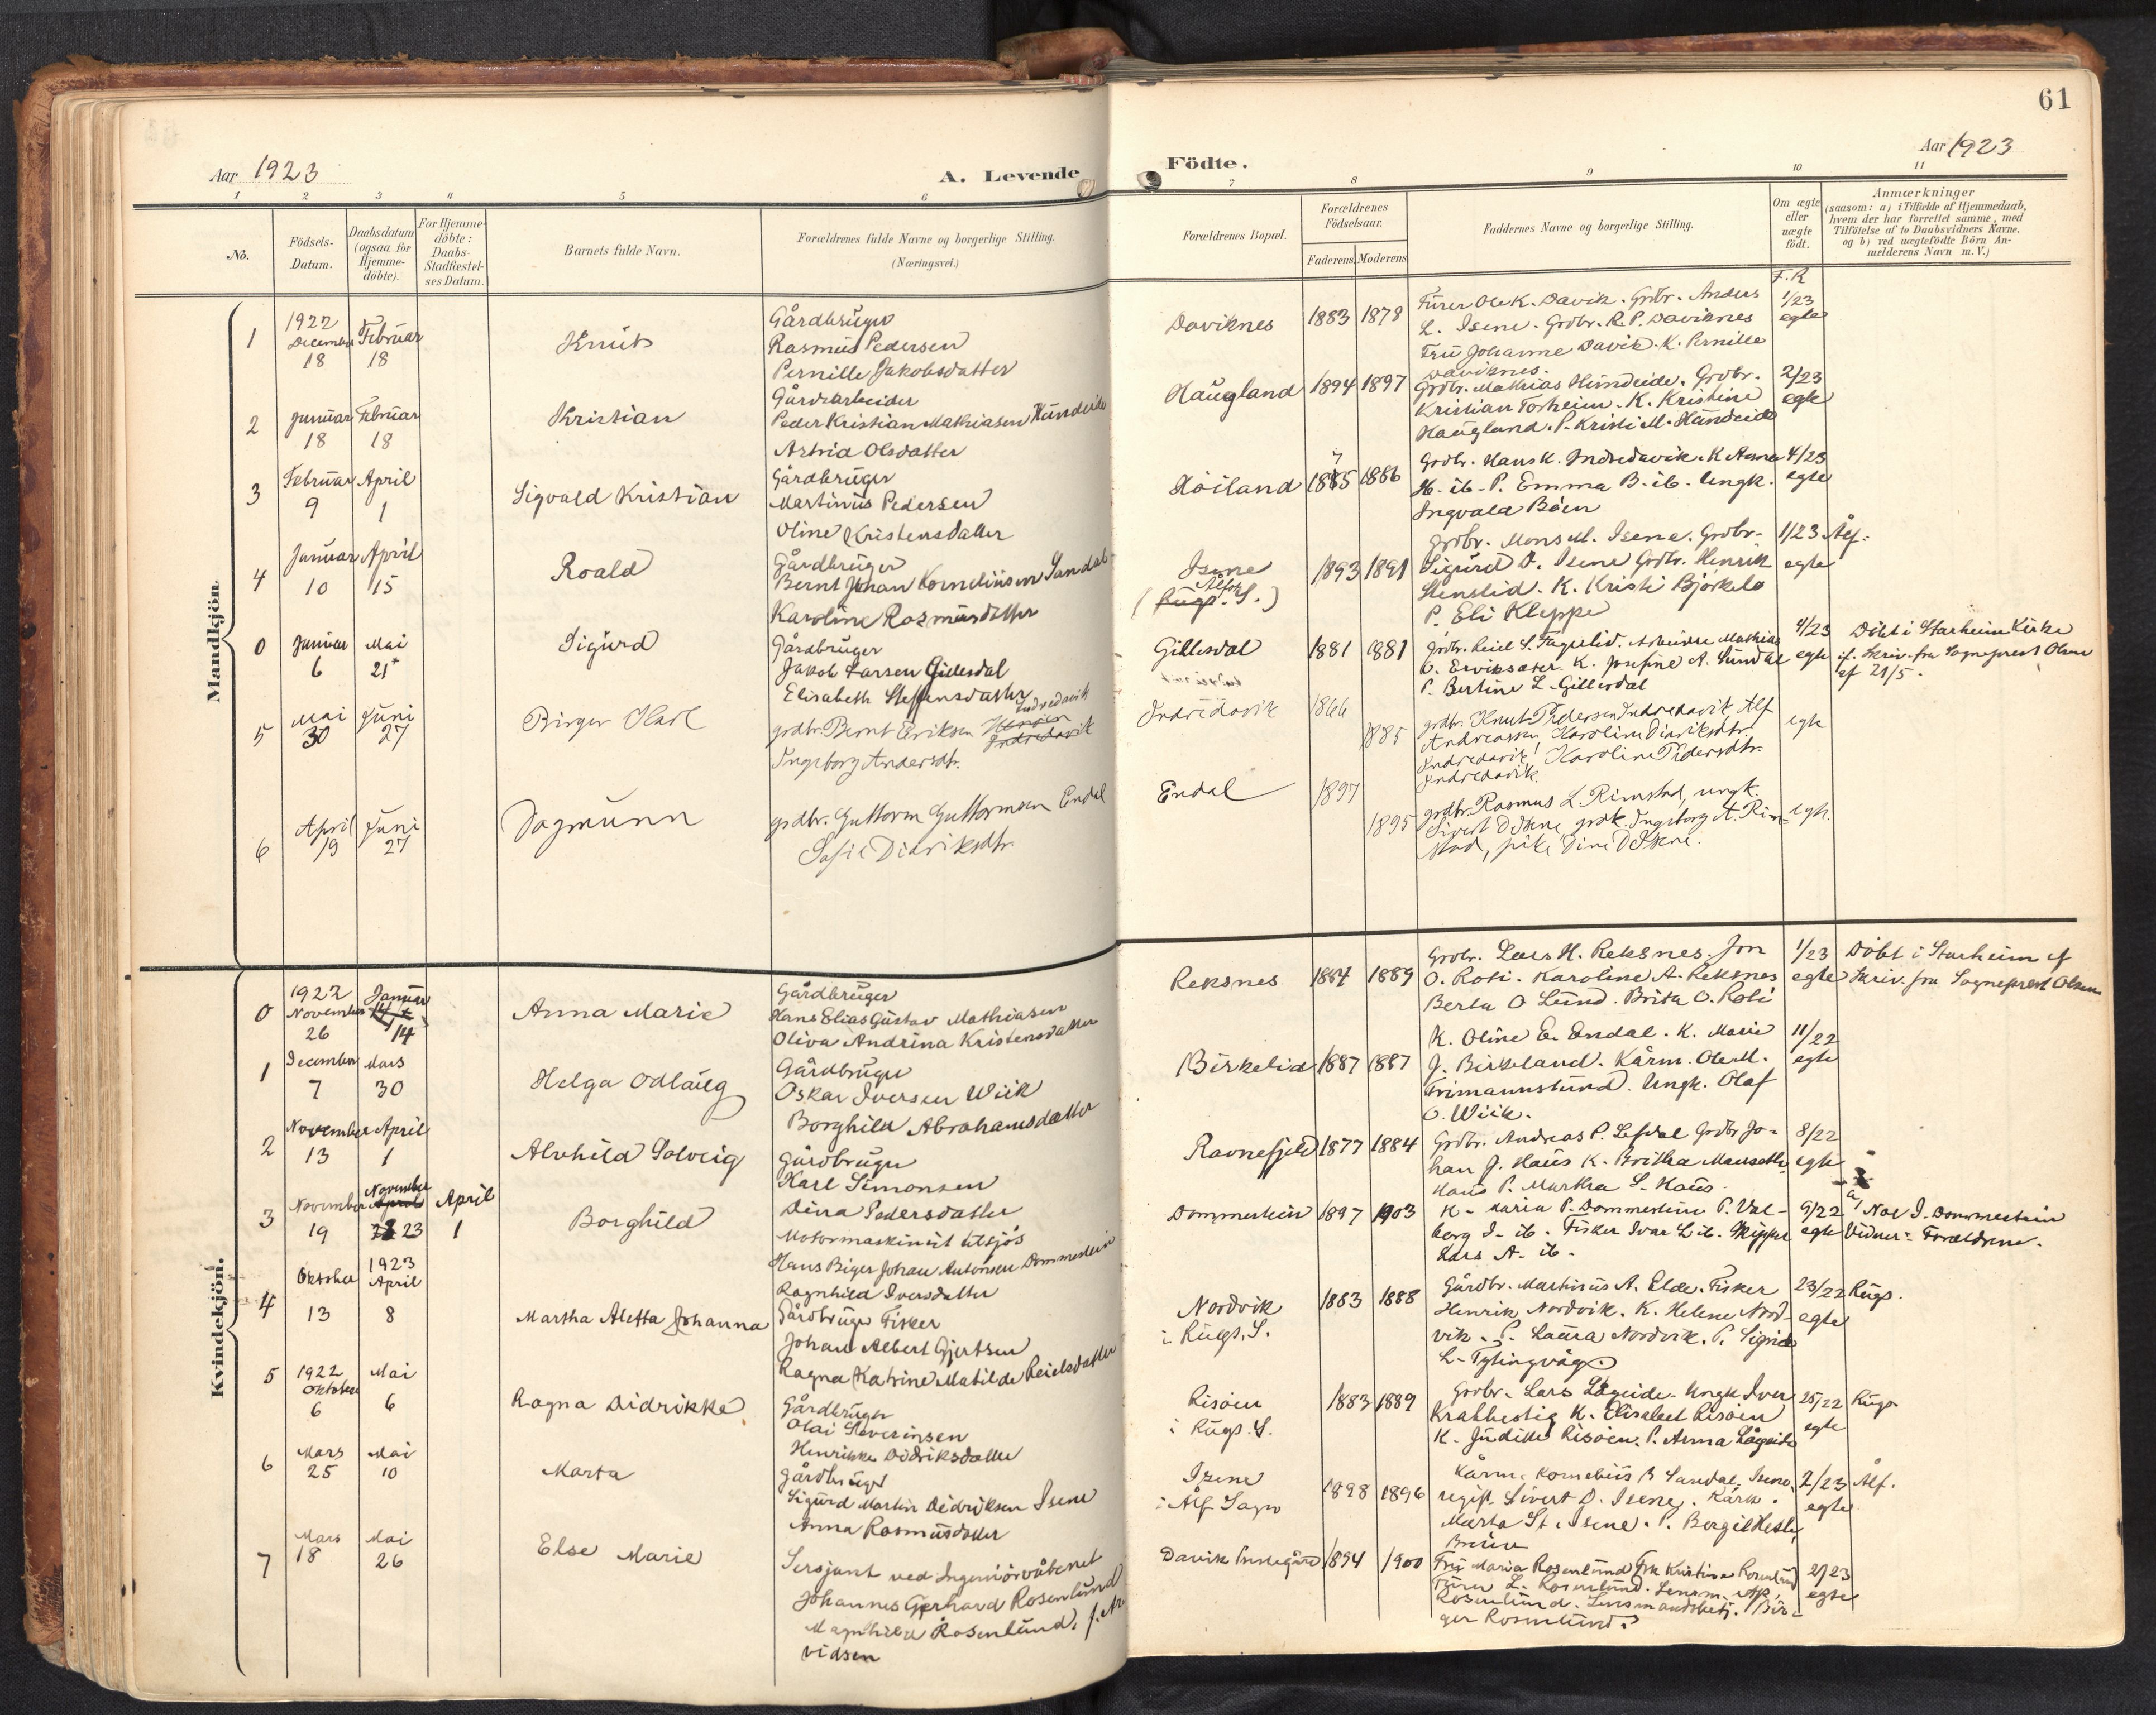 61
Aar 1923
A. Levende
Födte.
Aar 1923
1 2 3 4 5 6
7 8 9 10 11
No.
Födsels-
Datum.
Daabsdatum
(ogsaa for
Hjemme-
döbte).
For Hjemme-
döbte:
Daabs-
Stadfæstel-
ses Datum.
Barnets fulde Navn.
Forældrenes fulde Navne og borgerlige Stilling.
(Næringsvei.)
Forældrenes Bopæl.
Forældrenes
Födselsaar.
Faderens Moderens
Faddernes Navne og borgerlige Stilling.
Om ægte
eller
uægte
födt.
Anmærkninger
(saasom: a) i Tilfælde af Hjemmedaab,
hvem der har forrettet samme, med
Tilföielse af to Daabsvidners Navne.
og b) ved uægtefödte Börn An-
melderens Navn m. V.)
Mandkjön.
1
1922
December
18
Februar
18
Knut
Gårdbruger
Rasmus Pedersen
Pernille Jakobsdatter
Daviknes
1883 1878
Furer Ole K. Davik. Grdbr. Anders
L. Isene. Grdbr. R. P. Daviknes
Fru Johanne Davik. K. Pernille
Daviknes.
F. R
1/23
egte
2
Januar
18
Februar
18
Kristian
Gårdsarbeider
Peder Kristian Mathiasen Hundeide
Astrid Olsdatter
Haugland
1894 1897
Grdbr. Mathias Hundeide. Grdbr.
Kristian Torheim. K. Kristine
Haugland. P. Kristi M. Hundeide
2/23
egte
3
Februar
9
April
1
Sigvald Kristian
Gårdbruger
Martinus Pedersen
Oline Kristensdatter
Höiland
1885 1886
7
Grdbr. Hans K. Indredavik. K Anna
H. ib. P. Emma B. ib. Ungk.
Ingvald Böen
4/23
egte
4
Januar
10
April
15
Roald
Gårdbruger
Bernt Johan Korneliussen Sandal
Karoline Rasmusdatter
Isene
Ålfot
(Rugs. S.)
1893 1891
Grdbr. Mons M. Isene. Grdbr.
Sigurd D. Isene Grdbr. Henrik
Henslid. K. Kristi Björkelo
P. Eli Kleppe
1/23
egte
Ålf.
0
Januar
6
Mai
21+
Sigurd
Gårdbruger
Jakob Larsen Gillesdal
Elisabeth Steffensdatter
Gillesdal
1881 1881
Grdbr. Reiel S. Fagerlid. Arbeider Mathias
O. Erviksæter. K. Josefine A. Sundal
P. Bertine L. Gillesdal
4/23
egte
Döbt i Starheim Kirke
if. Skriv. fra Sogneprest Olsen
af 21/5.
5
Mai
30
Juni
27
Birger Karl
grdbr. Bernt Eriksen
Indredavik
Indredavik
Ingeborg Andersdtr.
Indredavik
1866
1885
grdbr. Knut Pedersen Indredavik, Alf
Andreassen, Karoline Didriksdtr.
Indredavik, Karoline Pedersdtr.
Indredavik
egte
6
April
19
Juni
27
Dagmunn
grdbr. Guttorm Guttormsen Endal
Sofie Didriksdtr.
Endal
1897
1895
grdbr. Rasmus L Rimstad, ungk.
Sivert D Isene, grdk. Ingeborg A. Rim-
stad, pike Dina D Isene.
egte
Kvindekjön.
0
1922
November
26
Januar
14
Anna Marie
Gårdbruger
Hans Elias Gustav Mathiasen
Oliva Andrina Kristensdatter
Reksnes
1884 1889
Grdbr. Lars H. Reksnes. Jon
O. Roti. Karoline A. Reksnes
Berta O Lund. Brita O. Roti
1/23
egte
Döbt i Starheim if
Skriv. fra Sogneprest Olsen
1
December
7
Mars
30
Helga Odlaug
Gårdbruger
Oskar Iversen Wiik
Borghild Abrahamsdatter
Birkelid
1887 1887
K. Oline E. Endal. K. Marie
J. Birkeland. Kårm. Ole M.
Frimannslund. Ungk. Olaf
O. Wiik.
11/22
egte
2
November
13
April
1
Alvhild Solveig
Gårdbruger
Karl Simonsen
Dina Pedersdatter
Ravnefjeld
1877 1884
Grdbr. Andreas P. Lefdal Grdbr Jo-
han J. Haus K. Britha Mansdtr.
Haus P. Martha S. Haus.
8/22
egte
3
November
19
November
April
23
April
1
Borghild
Motormaskinist utsjös
Hans Biger Johan Antonsen Dommestein
Ragnhild Iversdatter
Dommestein
1897 1903
K. Maria P. Dommestein P. Val-
borg I. ib. Fisker Ivar L ib. Skipper
Lars A. ib.
9/22
egte
a) Noe I. Dommestein
Vidner: Forældrene.
4
Oktober
13
1923
April
8
Martha Aletta Johanna
Gårdbruger Fisker
Johan Albert Gjertsen
Ragna Katrine Matilde Reielsdatter
Nordvik
i Rugs. S.
1883 1888
Gårdbr. Martinus A. Elde. Fisker
Henrik Nordvik. K. Helene Nord-
vik. P. Laura Nordvik. P. Sigrid
L. Tytingvåg.
23/22
egte
Rugs.
5
1922
Oktober
6
Mai
6
Ragna Didrikke
Gårdbruger
Olai Severinsen
Henrikke Didriksdatter
Risöen
i Rugs. S.
1883 1889
Grdbr. Lars Lågeide. Ungk Iver
Krabbestig K. Elisabet Risöen
K. Judithe Risöen. P. Anna Lågeide
25/22
egte
Rugs.
6
Mars
25
Mai
10
Marta
Gårdbruger
Sigurd Martin Didriksen Isene
Anna Rasmusdatter
Isene
i Ålf. Sogn
1898 1896
Kårm. Kornelius B Sandal, Isene,
regist. Sivert D. Isene. Kårk.
Marta St. Isene. P. Bergit Hesle,
Bruen
2/23
egte
Ålf.
7
Mars
18
Mai
26
Else Marie
Sersjant ved Ingeniörvåbenet
Johannes Gerhard Rosenlund
Magnhild Rosenlund, f. Ar
vidsen
Davik Prestegård
1894 1900
Fru Maria Rosenlund Frk Kristina Rosenlund
Furer L. Rosenlund. Lensm.
Rosenlund. Lensmandsbetj. Bir-
ger Rosenlund.
2/23
egte